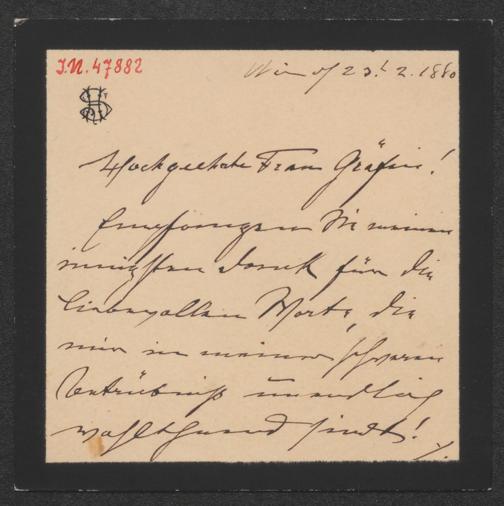 I.N. 47882
Wien d/ 23/2. 1880
Hochgeehrte Frau Gräfin!
Empfangen Sie meinen
innigsten Dank für die
liebevollen Worte, die
mir in meiner schweren
Betrübniß unendlich
wohlthuend sind!